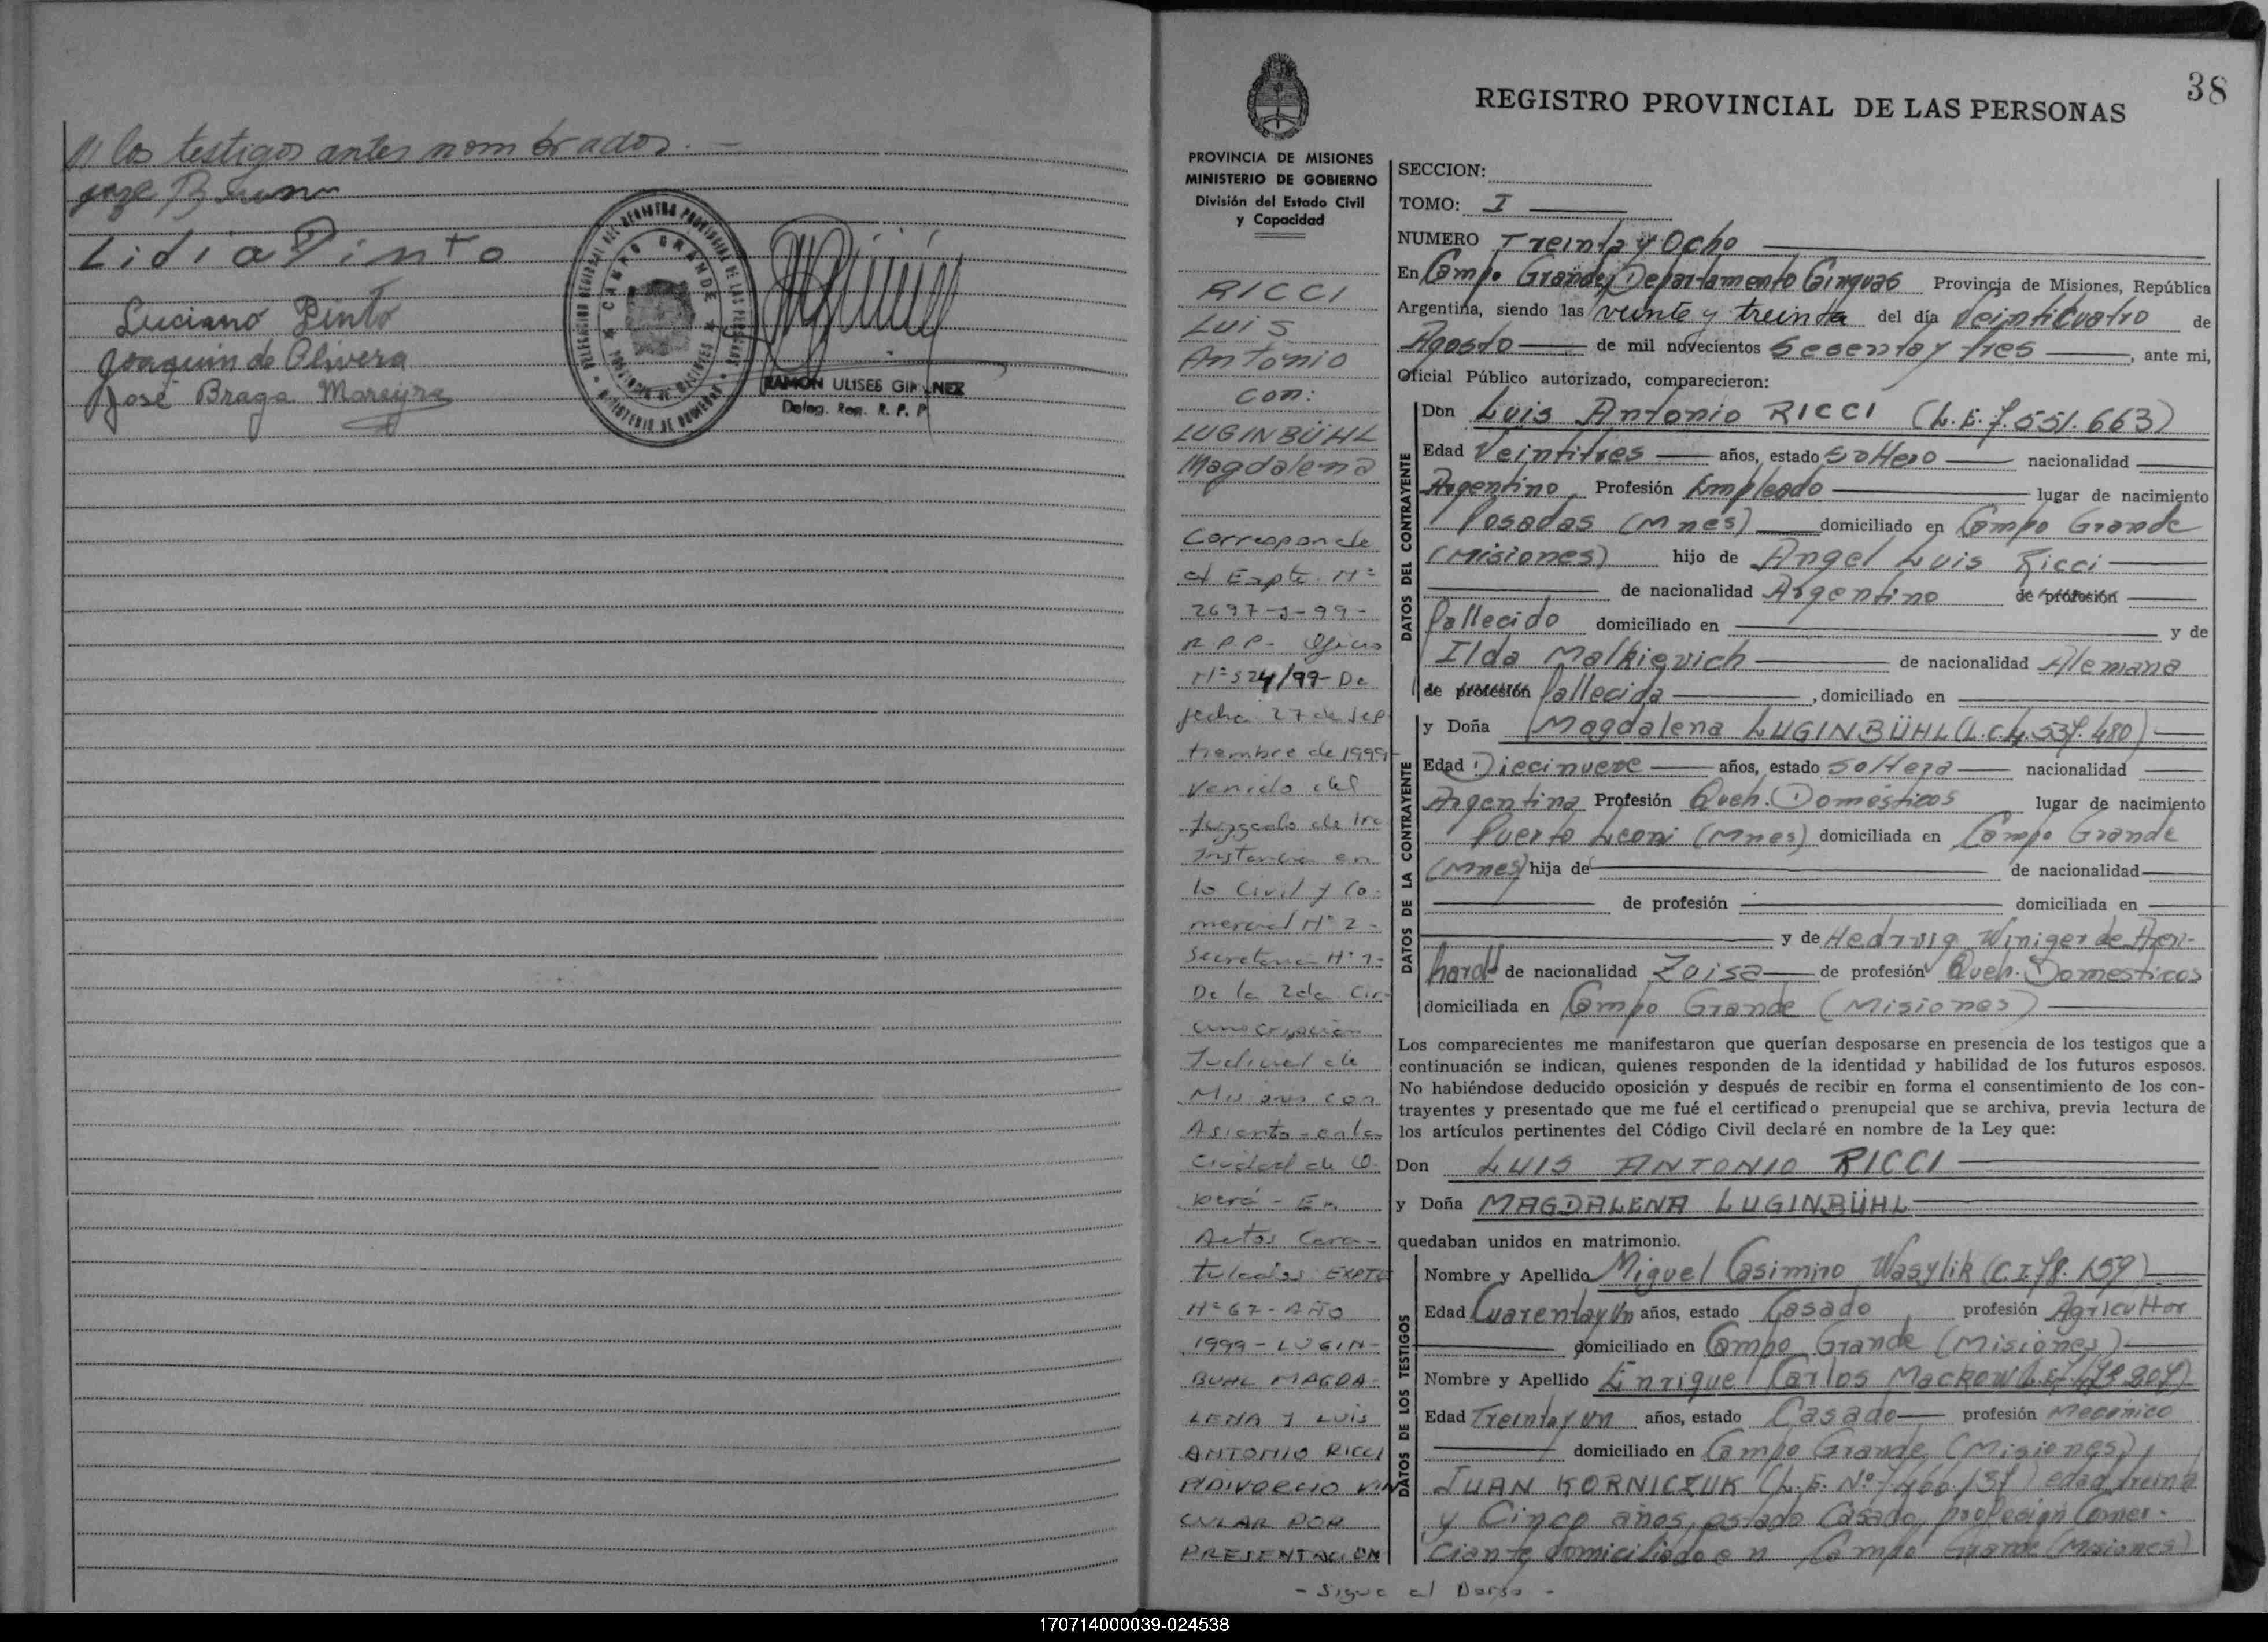 // los testigos antes nombrados. —
Jorge
Lidia Pinto
Luciano Pinto
Joaquin de Olivera
José Braga Mareyra
DELEGACION REGIONAL DEL REGISTRO PROVINCIAL DE LAS PERSONAS
CAMPO GRANDE
PROVINCIA DE MISIONES
MINISTERIO DE GOBIERNO
RAMON ULISES GIMENEZ
Deleg. Reg. R. P. P.
38
REGISTRO PROVINCIAL DE LAS PERSONAS
PROVINCIA DE MISIONES
MINISTERIO DE GOBIERNO
División del Estado Civil
y Capacidad
RICCI
Luis
Antonio
con:
LUGINBÜHL
Magdalena
Corresponde
al Expte. Nº
2697-J-99-
R.P.P.- Oficio
Nº 524/99- De
fecha 27 de Sep
tiembre de 1999-
Venido del
Juzgado de 1ra
Instancia en
lo Civil y Co-
mercial Nº 2-
Secretaria Nº 1-
De la 2da Cir-
cunscripción
Judicial de
Misiones con
Asiento en la
Ciudad de O-
berá - En
Autos Cara-
tulados: EXPTE
Nº 67 - AÑO
1999 - LUGIN-
BUHL MAGDA-
LENA Y LUIS
ANTONIO RICCI
P/DIVORCIO VIN
CULAR POR
PRESENTACION
- Sigue al Dorso -
SECCION:
TOMO: I
NUMERO Treinta y Ocho
En Campo Grande, Departamento Cainguas Provincia de Misiones, República
Argentina, siendo las veinte y treinta del día Veinticuatro de
Agosto de mil novecientos Sesenta y tres, ante mi,
Oficial Público autorizado, comparecieron:
DATOS DEL CONTRAYENTE
Don Luis Antonio RICCI (L.E.7.551.663)
Edad Veintitres años, estado Soltero nacionalidad
Argentino Profesión Empleado lugar de nacimiento
Posadas (Mnes) domiciliado en Campo Grande
(Misiones) hijo de Angel Luis Ricci
de nacionalidad Argentino de profesión
fallecido domiciliado en y de
Ilda Malkievich de nacionalidad Alemana
de profesión fallecida, domiciliado en
DATOS DE LA CONTRAYENTE
y Doña Magdalena LUGINBÜHL (L.C.4.537.480)
Edad Diecinueve años, estado Soltera nacionalidad
Argentina Profesión Queh. Domésticos lugar de nacimiento
Puerto Leoni (Mnes) domiciliada en Campo Grande
(Mnes) hija de de nacionalidad
de profesión domiciliada en
y de Hedwig Winiger de
de nacionalidad Zuisa de profesión Queh. Domesticos
domiciliada en Campo Grande (Misiones)
Los comparecientes me manifestaron que querían desposarse en presencia de los testigos que a
continuación se indican, quienes responden de la identidad y habilidad de los futuros esposos.
No habiéndose deducido oposición y después de recibir en forma el consentimiento de los con-
trayentes y presentado que me fué el certificado prenupcial que se archiva, previa lectura de
los artículos pertinentes del Código Civil declaré en nombre de la Ley que:
Don LUIS ANTONIO RICCI
y Doña MAGDALENA LUGINBÜHL
quedaban unidos en matrimonio.
DATOS DE LOS TESTIGOS
Nombre y Apellido Miguel Casimiro Wasylik
Edad Cuarenta y Un años, estado Casado profesión Agricultor
domiciliado en Campo Grande (Misiones)
Nombre y Apellido Enrique Carlos Mackow
Edad Treinta y un años, estado Casado profesión Mecánico
domiciliado en Campo Grande (Misiones),
JUAN KORNICZUK (L.E. Nº edad treinta
y Cinco años, estado Casado, profesión Comer-
ciante, domiciliado en Campo Grande (Misiones)
170714000039-024538